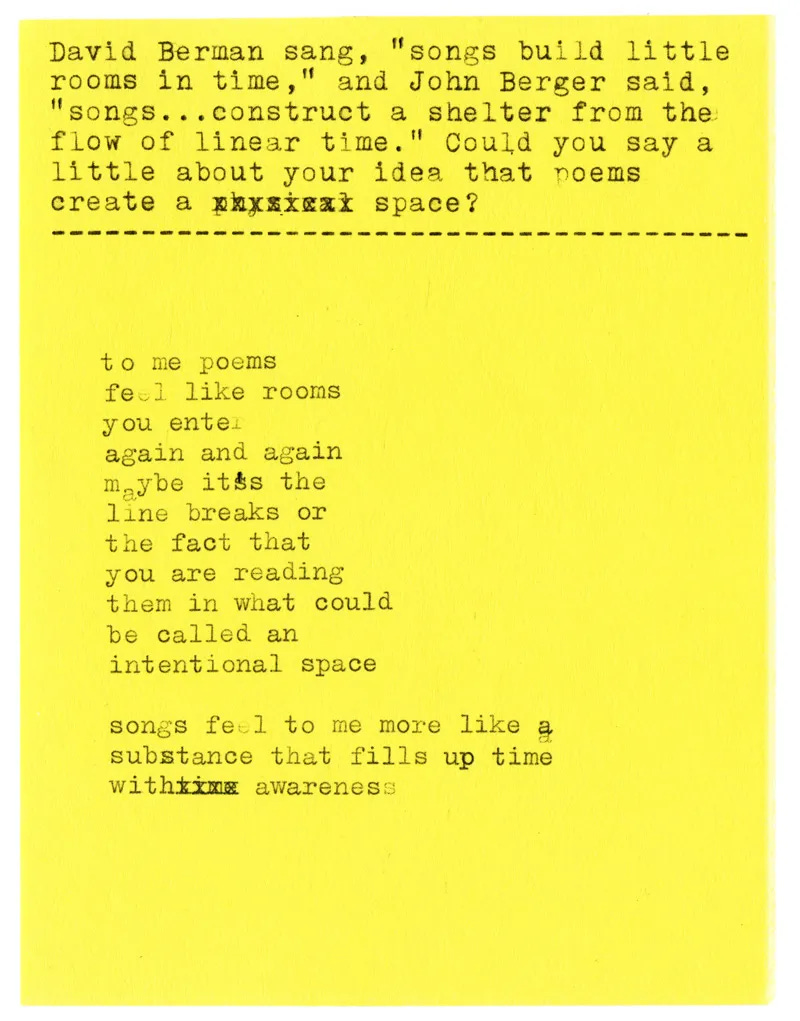 David Berman sang, "songs build little
rooms in time," and John Berger said,
"songs...construct a shelter from the
flow of linear time." Could you say a
little about your idea that poems
create a physical space?
----------------------------------------
to me poems
feel like rooms
you enter
again and again
maybe it's the
line breaks or
the fact that
you are reading
them in what could
be called an
intentional space
songs feel to me more like a
substance that fills up time
with awareness